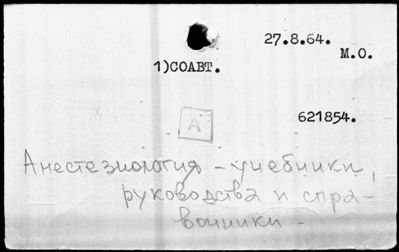 27.8.64.
М.О.
1)СОАВТ.
621854.
А
Анестезиология - учебники,
руководства и спра-
вочники -